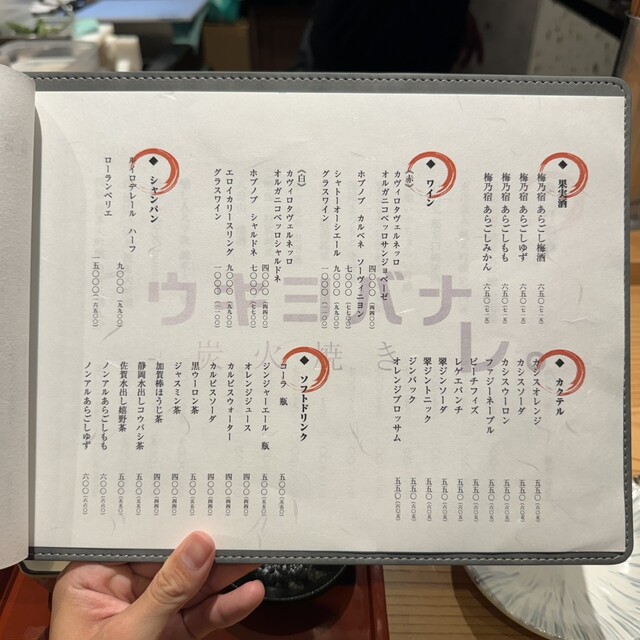 ◆ 果実酒
梅乃宿 あらごし梅酒 六五〇(七一五)
梅乃宿 あらごしゆず 六五〇(七一五)
梅乃宿 あらごしもも 六五〇(七一五)
梅乃宿 あらごしみかん 六五〇(七一五)
◆ ワイン
《赤》
カヴィロタヴェルネッロ
オルガニコベッロサンジョベーゼ 四〇〇〇(四四〇〇)
ホブノブ カルベネ ソーヴィニヨン 七〇〇〇(七七〇〇)
シャトーオーシエール 九〇〇〇(九九〇〇)
グラスワイン 一〇〇〇(一一〇〇)
《白》
カヴィロタヴェルネッロ
オルガニコベッロシャルドネ 四〇〇〇(四四〇〇)
ホブノブ シャルドネ 七〇〇〇(七七〇〇)
エロイカリースリング 九〇〇〇(九九〇〇)
グラスワイン 一〇〇〇(一一〇〇)
◆ シャンパン
ルイロデレール ハーフ 九〇〇〇(九九〇〇)
ローランペリエ 一五〇〇〇(一六五〇〇)
◆ カクテル
カシスオレンジ 五五〇(六〇五)
カシスソーダ 五五〇(六〇五)
カシスウーロン 五五〇(六〇五)
ファジーネーブル 五五〇(六〇五)
ピーチフーズ 五五〇(六〇五)
レゲエパンチ 五五〇(六〇五)
翠ジンソーダ 五五〇(六〇五)
翠ジントニック 五五〇(六〇五)
ジンバック 五五〇(六〇五)
オレンジブロッサム 五五〇(六〇五)
◆ ソフトドリンク
コーラ 瓶 五〇〇(五五〇)
ジンジャーエール 瓶 五〇〇(五五〇)
オレンジジュース 四〇〇(四四〇)
カルピスウォーター 四〇〇(四四〇)
カルピスソーダ 四〇〇(四四〇)
黒ウーロン茶 四〇〇(四四〇)
ジャスミン茶 四〇〇(四四〇)
加賀棒ほうじ茶 四〇〇(四四〇)
静岡水出しコウバシ茶 五〇〇(五五〇)
佐賀水出し嬉野茶 五〇〇(五五〇)
ノンアルあらごしもも 六〇〇(六六〇)
ノンアルあらごしゆず 六〇〇(六六〇)
ウキヨバナレ
炭火焼き